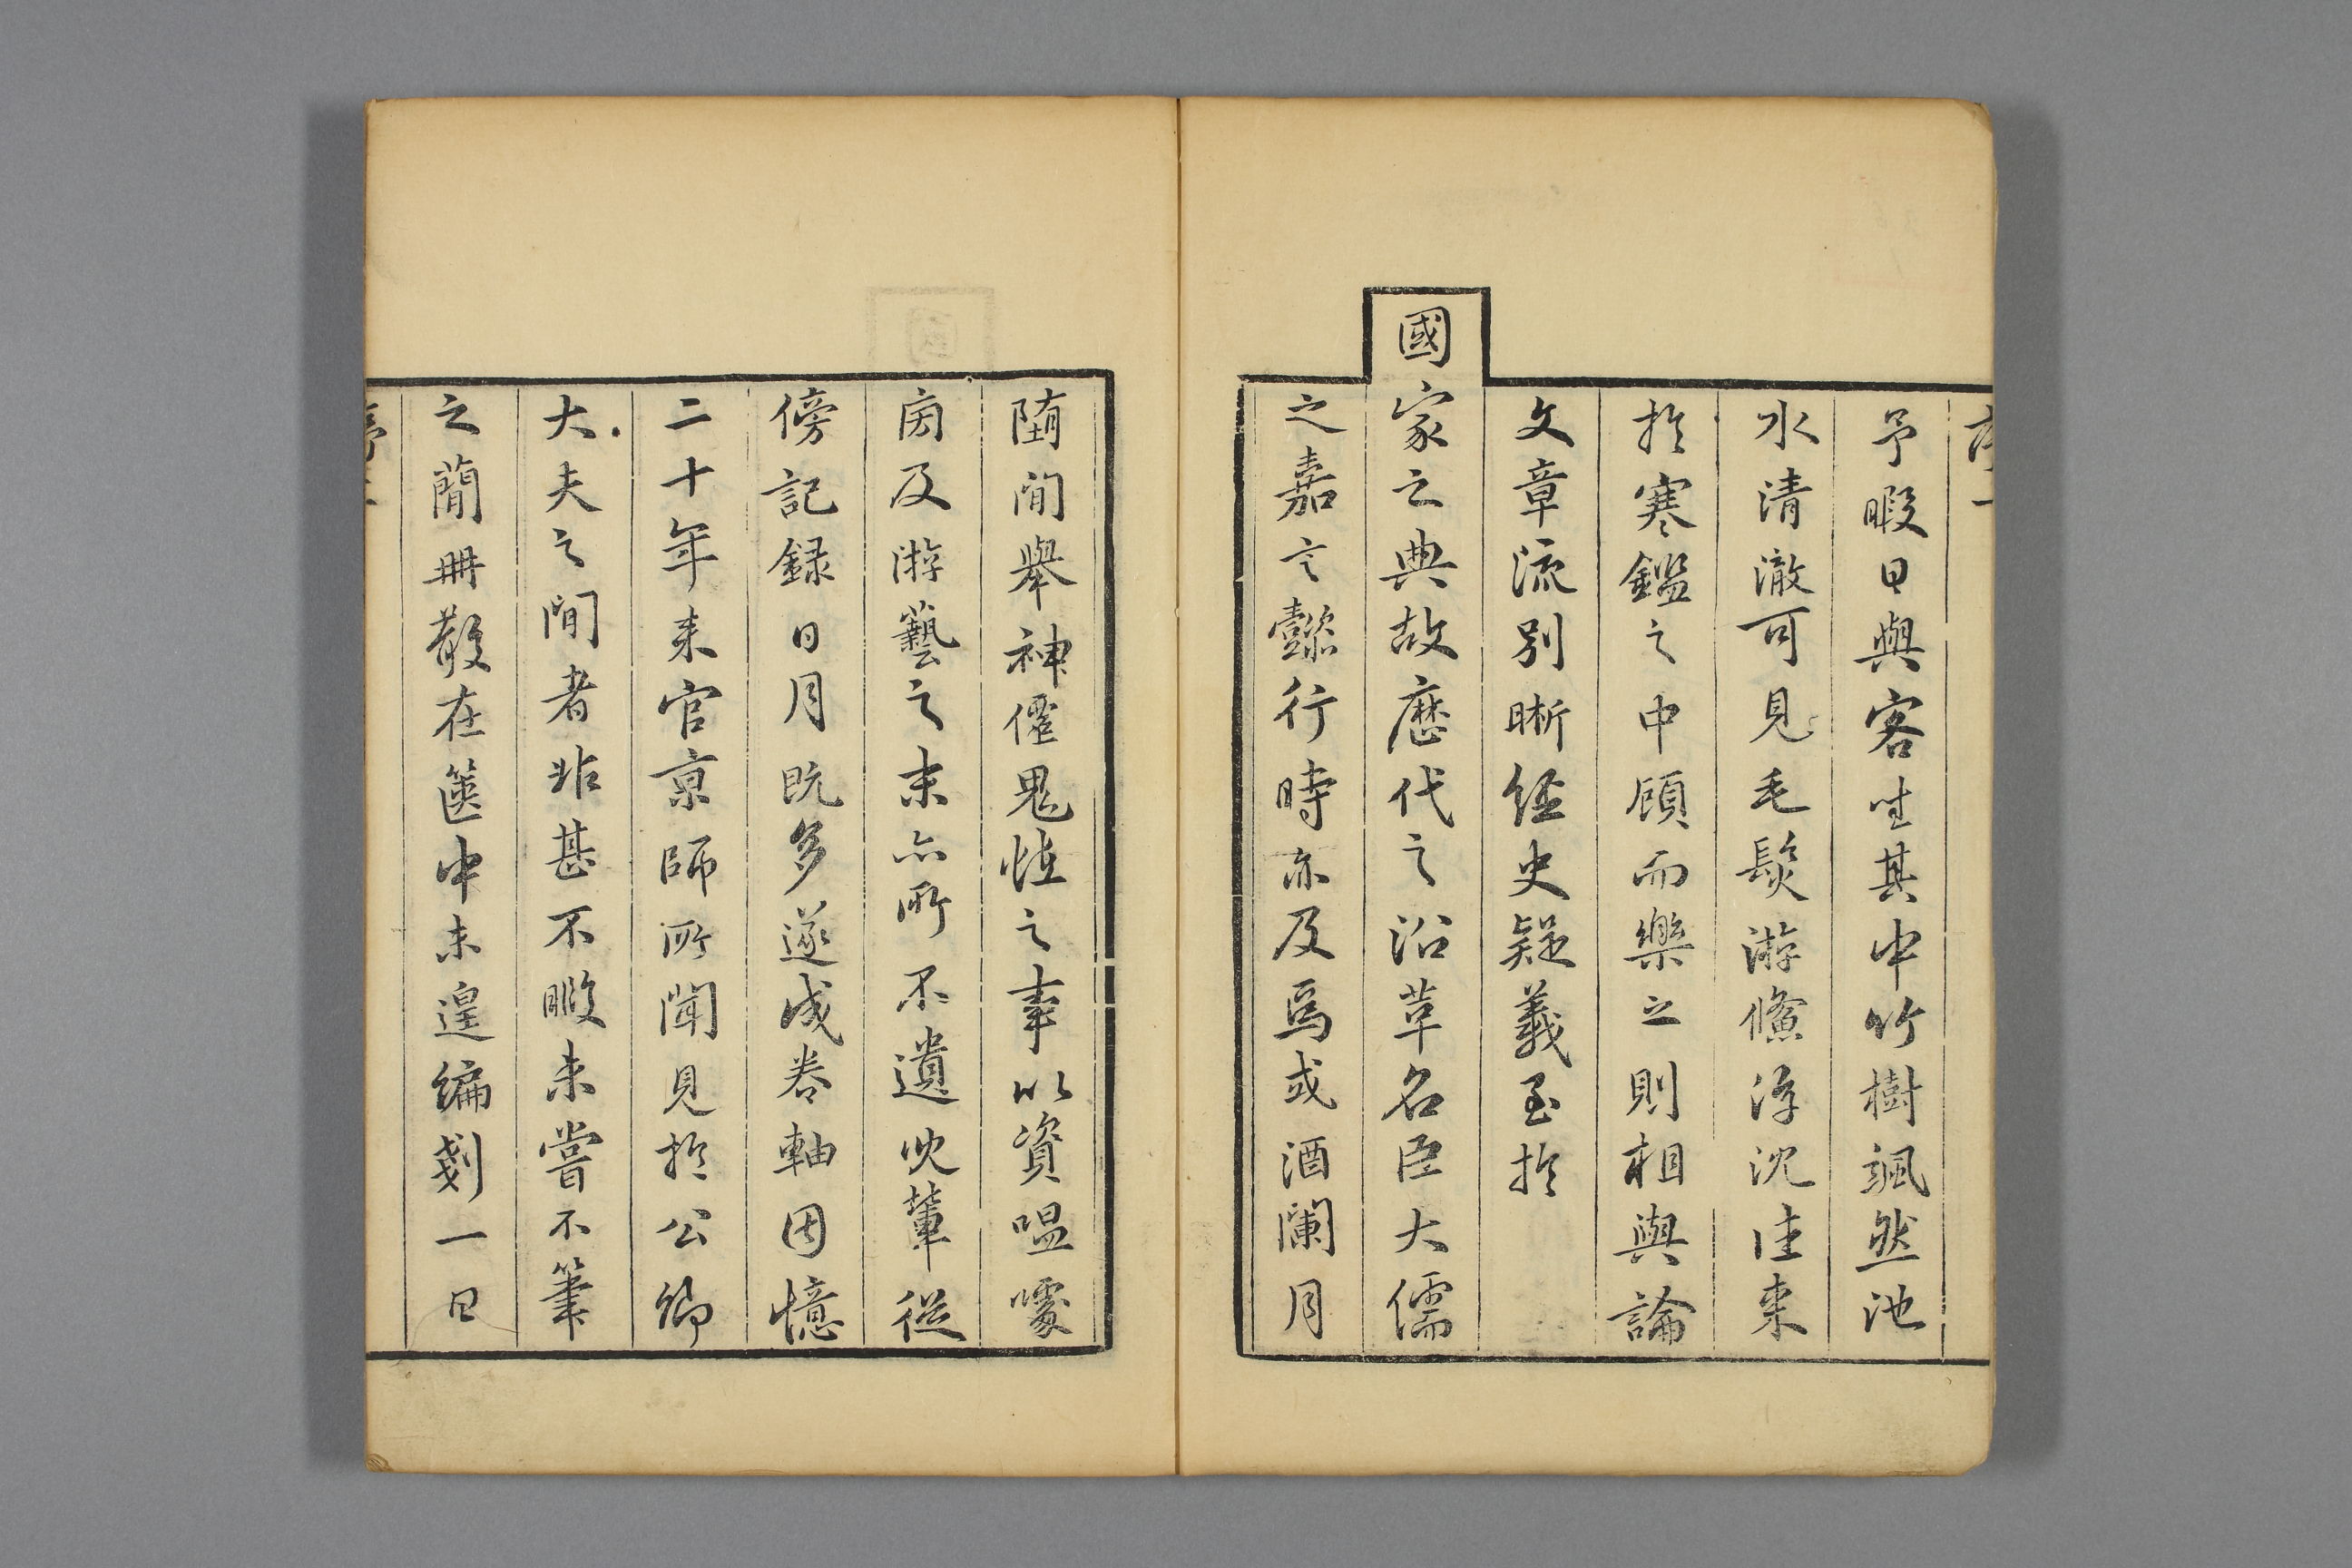 予暇日與客坐其中竹樹颯然池
水清澈可見毛髮游鯈浮沈往來
於寒鑑之中顧而樂之則相與論
文章流別晰經史疑義至於
國家之典故歷代之沿革名臣大儒
之嘉言懿行時亦及焉或酒闌月
墮閒舉神僊鬼怪之事以資嗢噱
旁及游藝之末亦所不遺兒輩從
傍記錄日月既多遂成卷軸因憶
二十年來官京師所聞見於公卿
大夫之間者非甚不暇未嘗不筆
之簡冊散在篋中未遑編剗一日